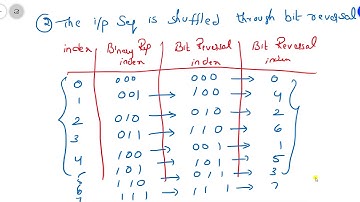 ② The i/p Seq is shuffled through bit reversal
index Binary Rep index Bit Reversal index Bit Reversal index
0 000 000 → 0
1 001 → 100 → 4
2 010 → 010 → 2
3 011 → 110 → 6
4 100 → 001 → 1
5 101 → 101 → 5
6 110 → 011 → 3
7 111 → 111 → 7